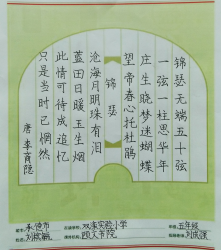 锦瑟无端五十弦
一弦一柱思华年
庄生晓梦迷蝴蝶
望帝春心托杜鹃
锦瑟
沧海月明珠有泪
蓝田日暖玉生烟
此情可待成追忆
只是当时已惘然
唐 李商隐
承德市
双滦实验小学
五年级